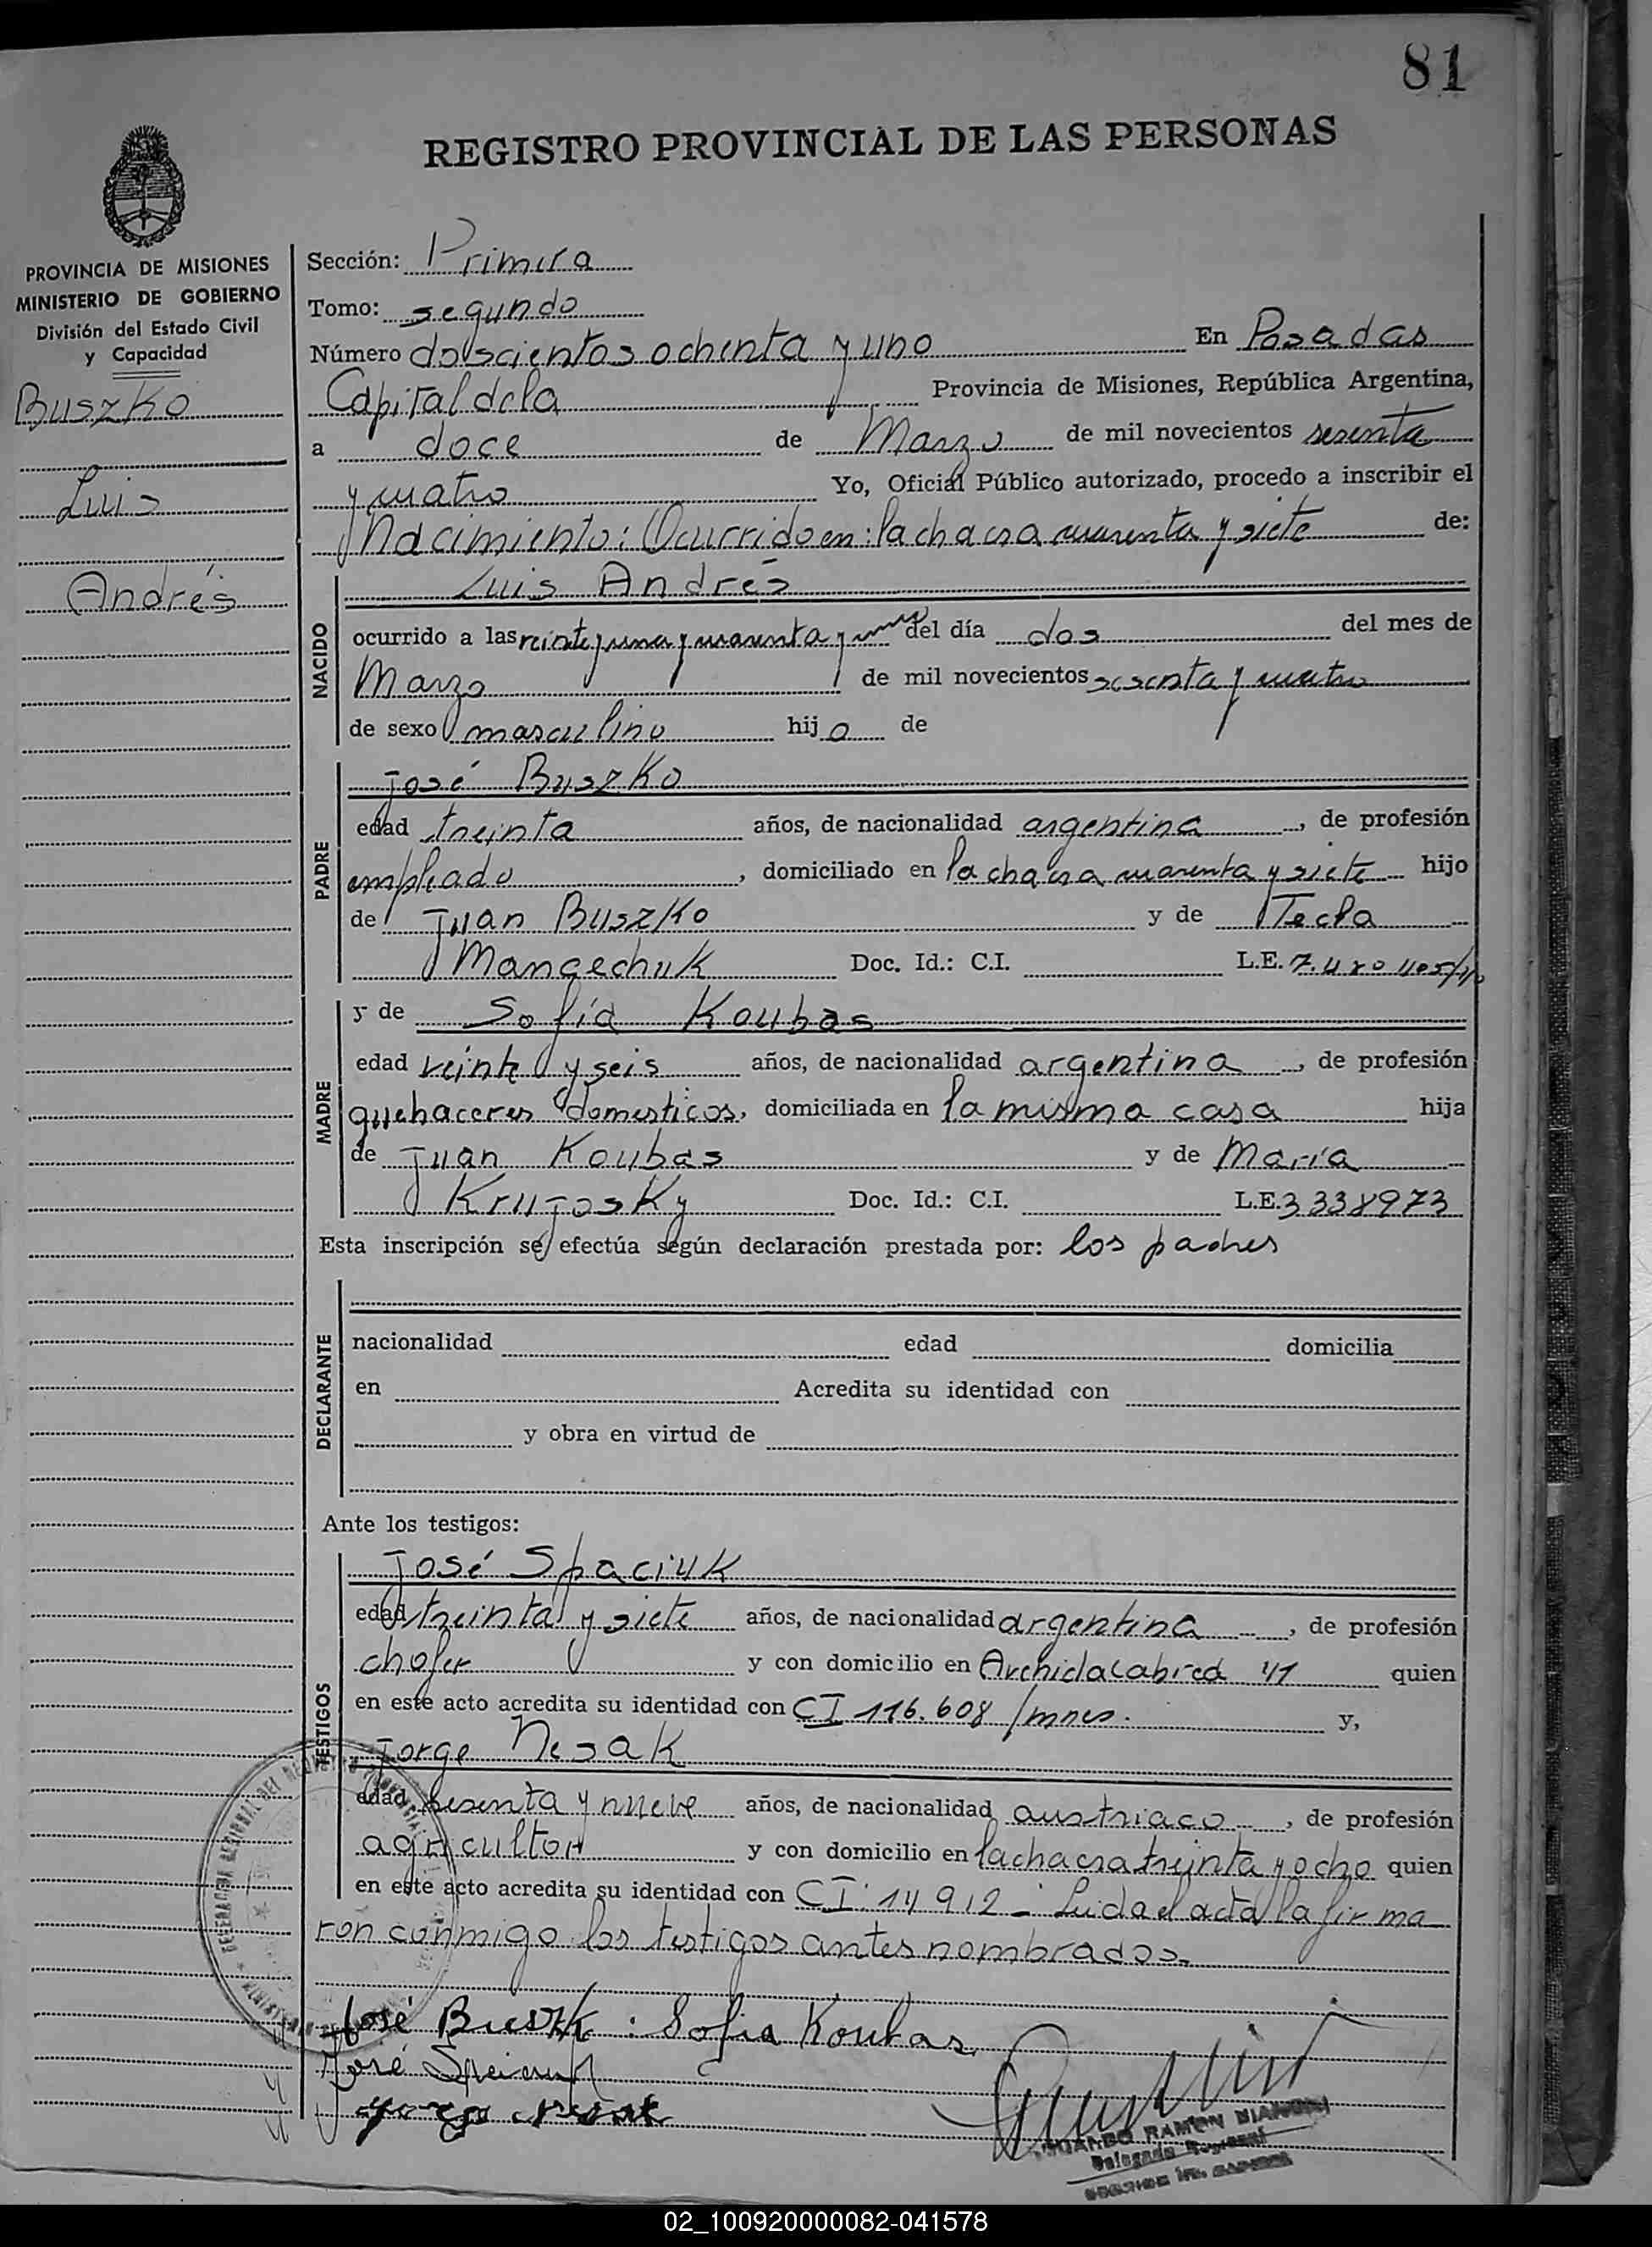 81
REGISTRO PROVINCIAL DE LAS PERSONAS
PROVINCIA DE MISIONES
MINISTERIO DE GOBIERNO
División del Estado Civil
y Capacidad
Buszko
Luis
Andrés
Sección: Primera
Tomo: segundo
Número doscientos ochenta y uno En Posadas
Capital de la Provincia de Misiones, República Argentina,
a doce de Marzo de mil novecientos sesenta
y cuatro Yo, Oficial Público autorizado, procedo a inscribir el
Nacimiento: Ocurrido en: la chacra cuarenta y siete de:
NACIDO
Luis Andrés
ocurrido a las veinte y una y cuarenta y del día dos del mes de
Marzo de mil novecientos sesenta y cuatro
de sexo masculino hijo de
PADRE
José Buszko
edad treinta años, de nacionalidad argentina, de profesión
empleado, domiciliado en la chacra cuarenta y siete hijo
de Juan Buszko y de Tecla
Mancechuk Doc. Id.: C.I. L.E.
MADRE
y de Sofía Koubas
edad veinte y seis años, de nacionalidad argentina, de profesión
quehaceres domesticos, domiciliada en la misma casa hija
de Juan Koubas y de María
Krujosky Doc. Id.: C.I. L.E. 3338973
Esta inscripción se efectúa según declaración prestada por: los padres
DECLARANTE
nacionalidad edad domicilia
en Acredita su identidad con
y obra en virtud de
Ante los testigos:
TESTIGOS
José Spaciuk
edad treinta y siete años, de nacionalidad argentina, de profesión
chofer y con domicilio en 41 quien
en este acto acredita su identidad con CI 116.608/mnes. y,
Jorge Nesak
edad sesenta y nueve años, de nacionalidad austriaco, de profesión
agricultor y con domicilio en la chacra treinta y ocho quien
en este acto acredita su identidad con CI: 14912 - Leida el acta la firma
ron conmigo los testigos antes nombrados-
José Buszko: Sofia Koubas
José
RAMON
Delegado Regional
02_100920000082-041578